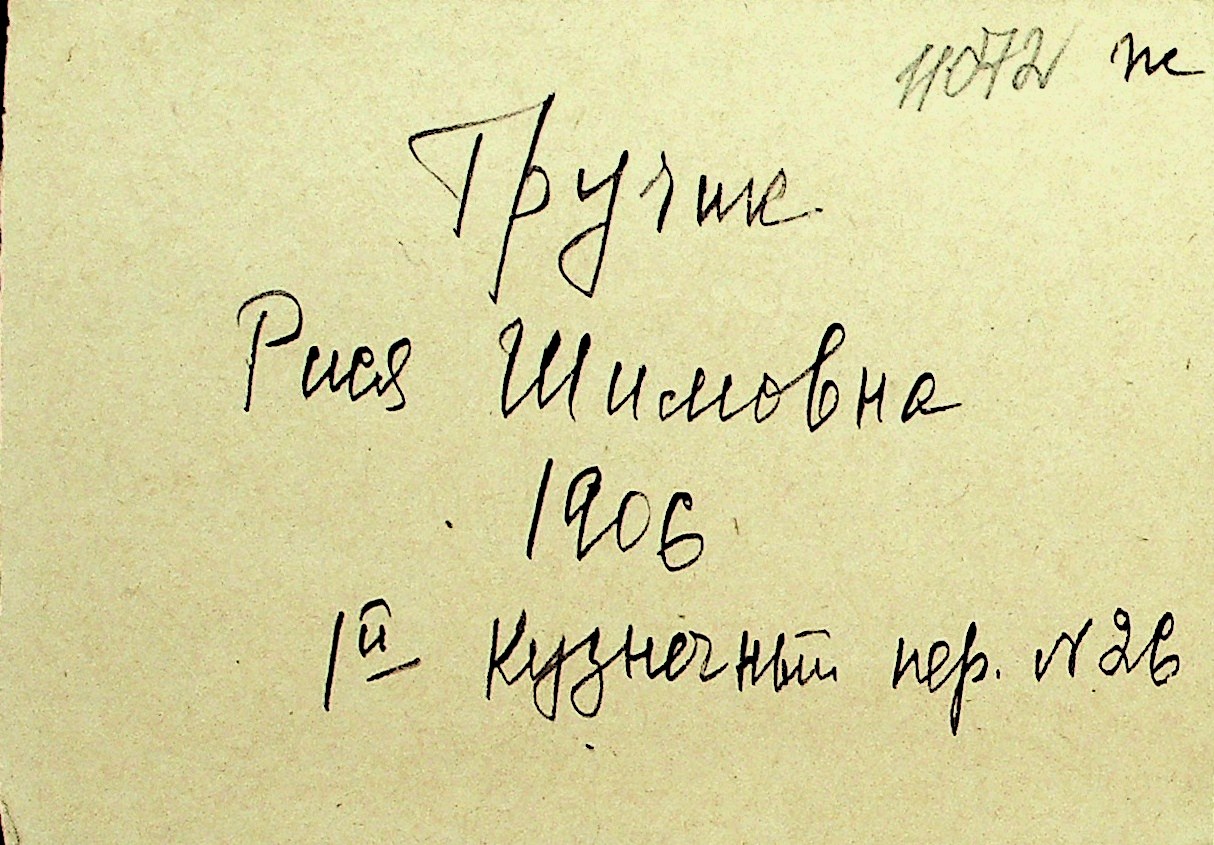 11072 ж
Тручик
Рися Шимовна
1906
1й Кузнечный пер. N 26